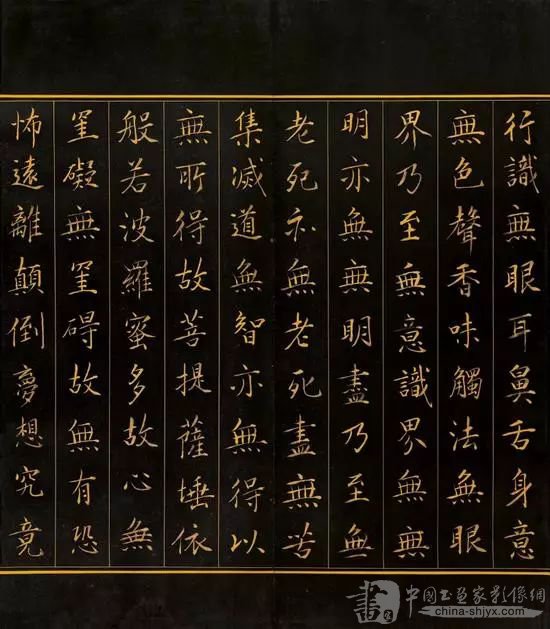 行識無眼耳鼻舌身意
無色聲香味觸法無眼
界乃至無意識界無無
明亦無無明盡乃至無
老死亦無老死盡無苦
集滅道無智亦無得以
無所得故菩提薩埵依
般若波羅蜜多故心無
罣礙無罣碍故無有恐
怖遠離顛倒夢想究竟
中國书画家影像網
china-shjyx.com